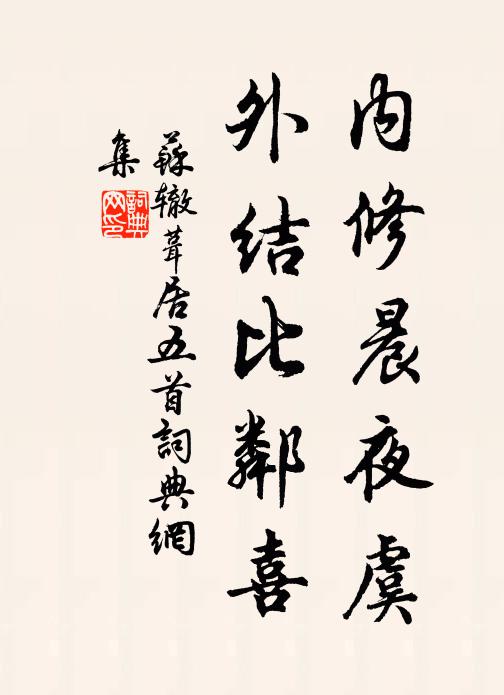 内修晨夜虞
外结比鄰喜
蘇辙葺居五首詞典網
集
詞典网印